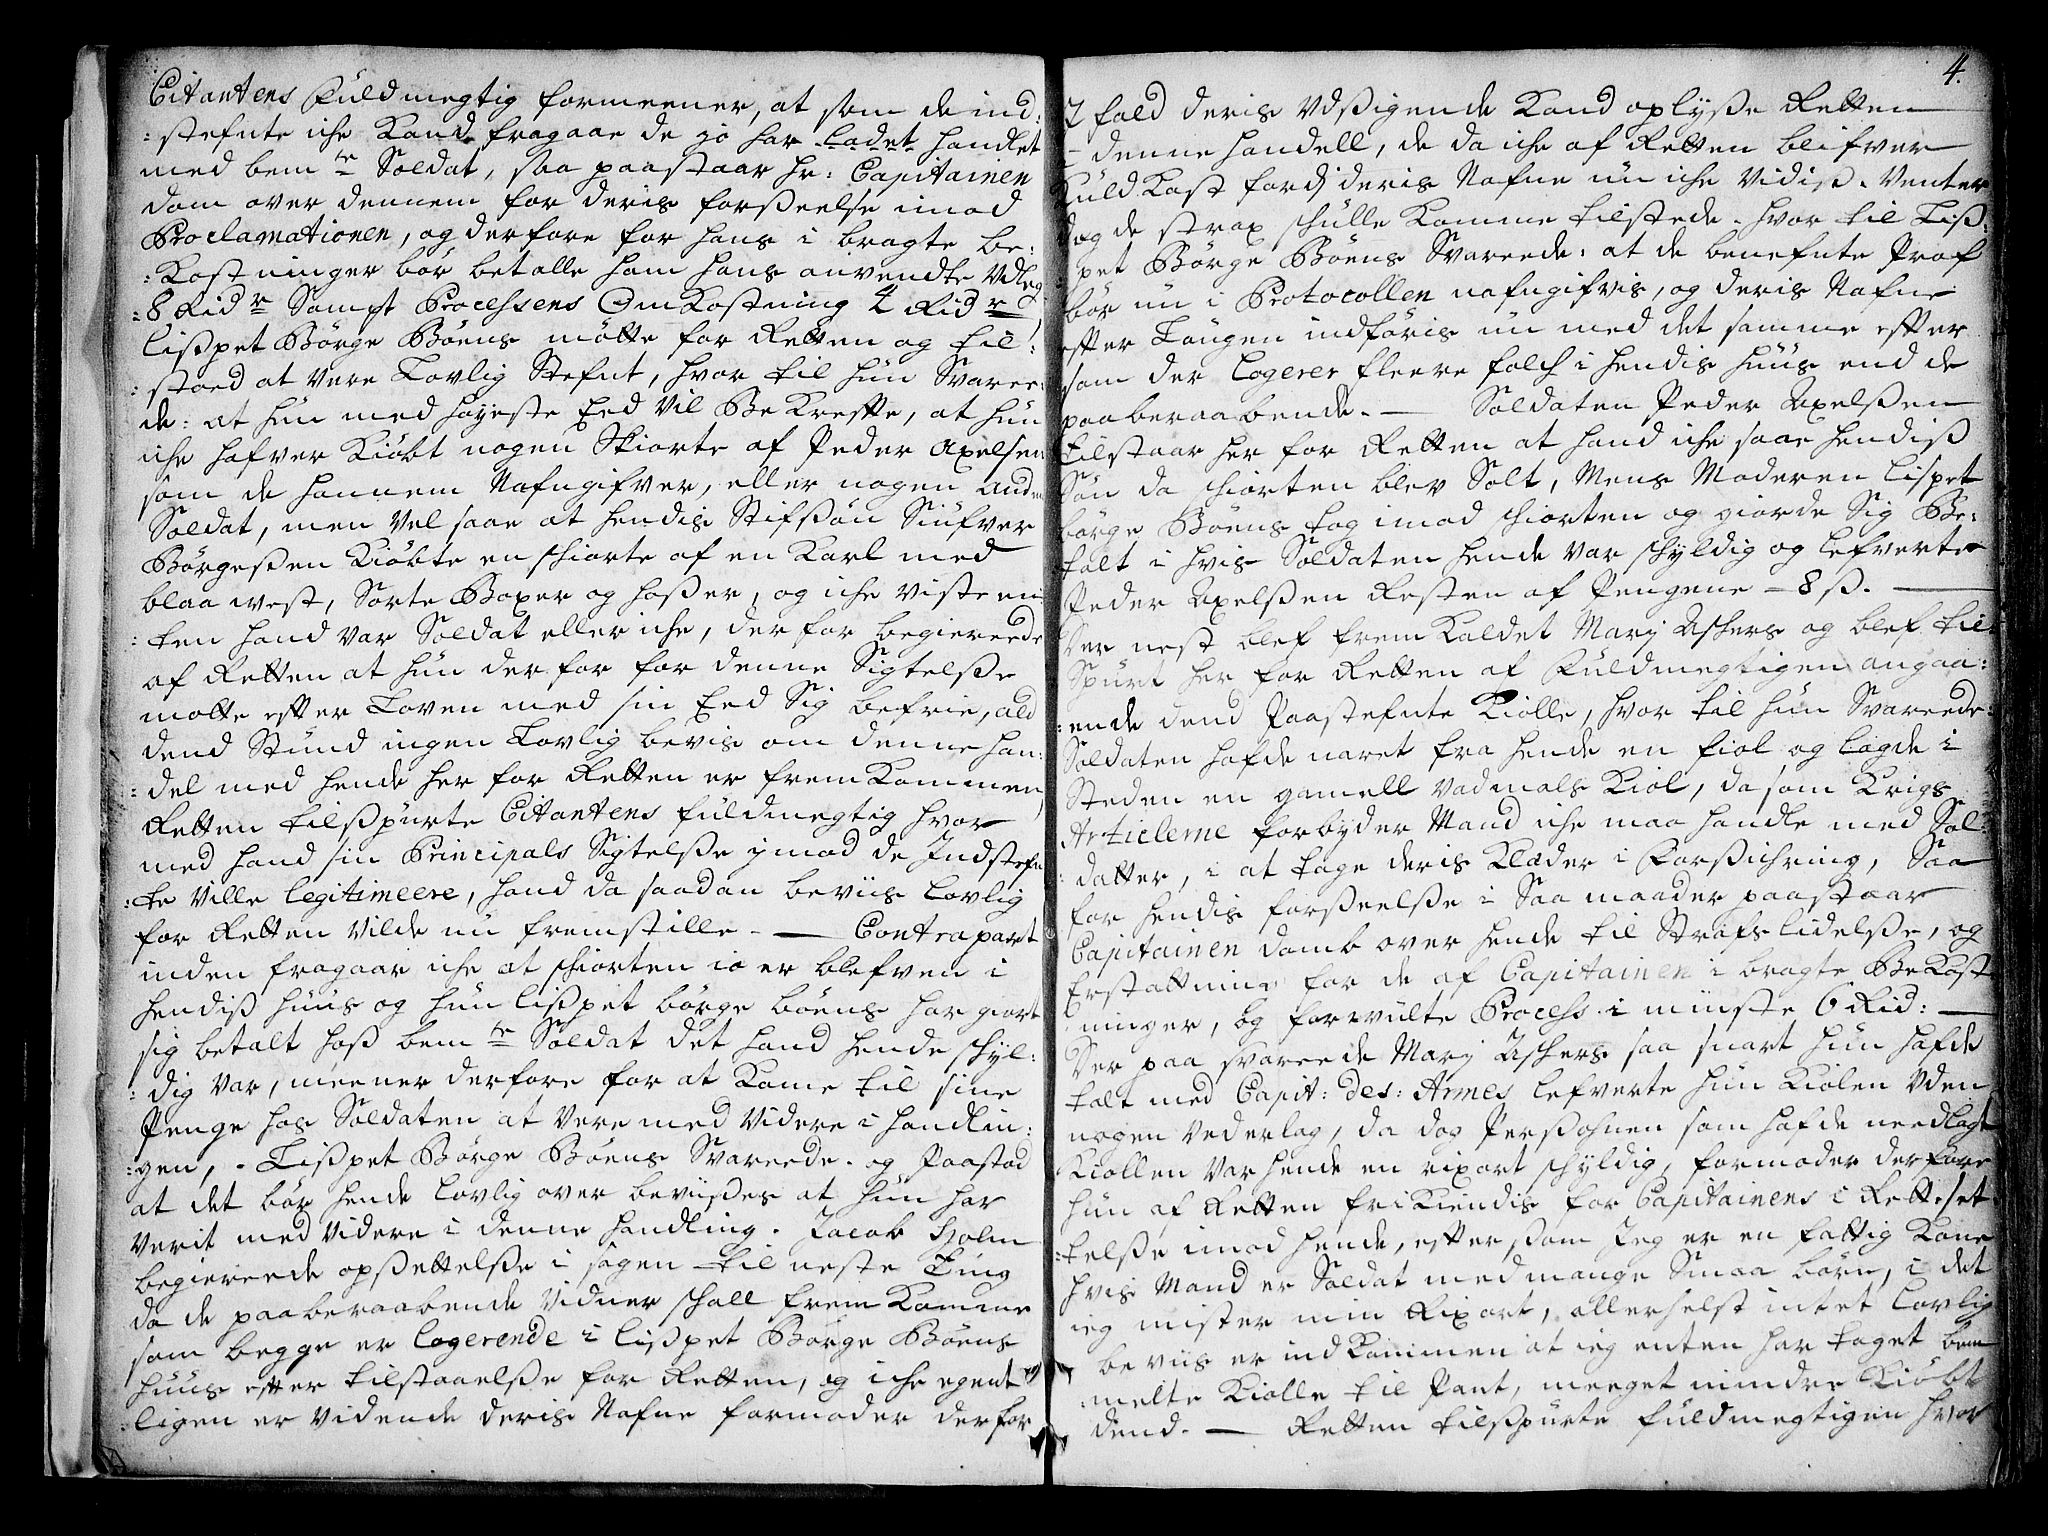 Citantens Fuldmegtig formeener, at som de ind:
:stefnte iche Kand fragaae de jo har ladet handlet
med bem.te Soldat, saa paastaar hr: Capitainen
dom over dennem for deris forßeelse imod
Proclamationen, og derfore for hans i bragte be:
:Kostninger bør betalle ham hans anvendte Udleg
8 Rid.r Sampt Processens OmKostning 4 Rid.r
Lißpet Børge Bøens møtte for Retten og til:
:stoed at vere Lovlig Stefnt, hvor til hun Svaree:
de: at hun med høyeste Eed vil BeKreffte, at hun
iche hafver Kiøbt nogen Skiorte af Peder Axelsen
som de hannem Nafngifver, eller nogen anden
Soldat, men vel saae at hendis Stifsøn Siufver
Børgeßen Kiøbte en schiorte af en Karl med
blaa west, Sorte Boxer og hoßer, og iche viste en:
:ten hand var Soldat eller iche, derfor begiereede
af Retten at hun der for for denne Sigtelße
motte effter Loven med sin Eed Sig befrie, ald
dend Stund ingen Lovlig bevis om denne han:
:del med hende her for Retten er fremKommen,
Retten tilßpurte Citantens fuldmegtig hvor
med hand sin Principals Sigtelße imod de Indstefn
:te ville legitimeere, hand da saadan beviis Lovlig
for Retten vilde nu fremstille. — Contrapart
inden fragaar iche at schiorten io er blefven i
hendiß huus og hun lißpet børge bøens har giort
sig betalt hoß bem.te Soldat det hand hende schyl:
:dig var, meener derfore for at Kome til sine
Penge hos Soldaten at vere med videre i handlin:
:gen, . Lißpet Børge Bøens Svareede. og Paastod
at det bør hende lovlig over beviißes at hun har
verit med videre i denne handling. Jacob Holm
begiereede opßettelße i sagen til neste Ting
da de paaberaabende vidner schall fremKomme
som begge er logerende i lißpet Børge Bøens
huus effter tilstaaelße for Retten, og iche egent
:ligen er vidende deris Nafne formoder derfor
4.
I fald deris Udßigende Kand oplyße Retten
i denne handell, de da iche af Retten blifver
KuldKast fordj deris Nafne nu iche vidis. Venter
dog de strax schulle Komme tilstede. hvor til Liß:
:pet Børge Bøens Svareede: at de benefnte Prof
bør nu i Protocollen nafngifvis, og deris Nafne
effter Laugen indføris nu med det samme effter
som der logerer fleere folch i hendis huus end de
paaberaabende. — Soldaten Peder Axelßen
tilstaar her for Retten at hand iche saae hendiß
Søn da schiorten blev Solt, Mens Moderen lispet
børge Bøens tog imod schiorten og giorde Sig Be:
talt i hvis Soldaten hende var schyldig og lefverte
Peder Axelßen Resten af Pengene — 8 ß. —
Der nest blef fremKaldet Marj Aschers og blef til:
Spurt her for Retten af Fuldmegtigen angaa:
:ende dend Paastefnte Kiolle, hvor til hun Svareede:
Soldaten hafde naret fra hende en fiol og lagde i
Steden en gamell Vadmals Kiol, da som Krigs
Articlerne forbyder Mand iche maa handle med Sol:
:datter, i at tage deris Klæder i Forßichring, Saa
for hendis forßeelße i Saa maader paastaar
Capitainen domb over hende til Strafs lidelße, og
Erstattning for de af Capitainen i bragte BeKost
:ninger, og forvoulte Process i minste 6 Rid: —
Der paa svareede Marj Aschers saa snart hun hafde
talt med Capit: des: Armes lefverte hun Kiolen Uden
nogen vederlag, da dog Perßohnen som hafde needlagt
Kiollen var hende en rixort schyldig, formoder derfore
hun af Retten friKiendis for Capitainens i Rettesæt
:telße imod hende, efterßom Jeg er en fattig Kone
hvis Mand er Soldat med mange Smaa børn, i det
ieg mister min Rixort, allerhelst intet lovlig
beviis er indKommen at ieg enten har taget bem
:melte Kiolle til Pant, meeget mindre Kiøbt
dend. — Retten tilßpurte fuldmegtigen hvor